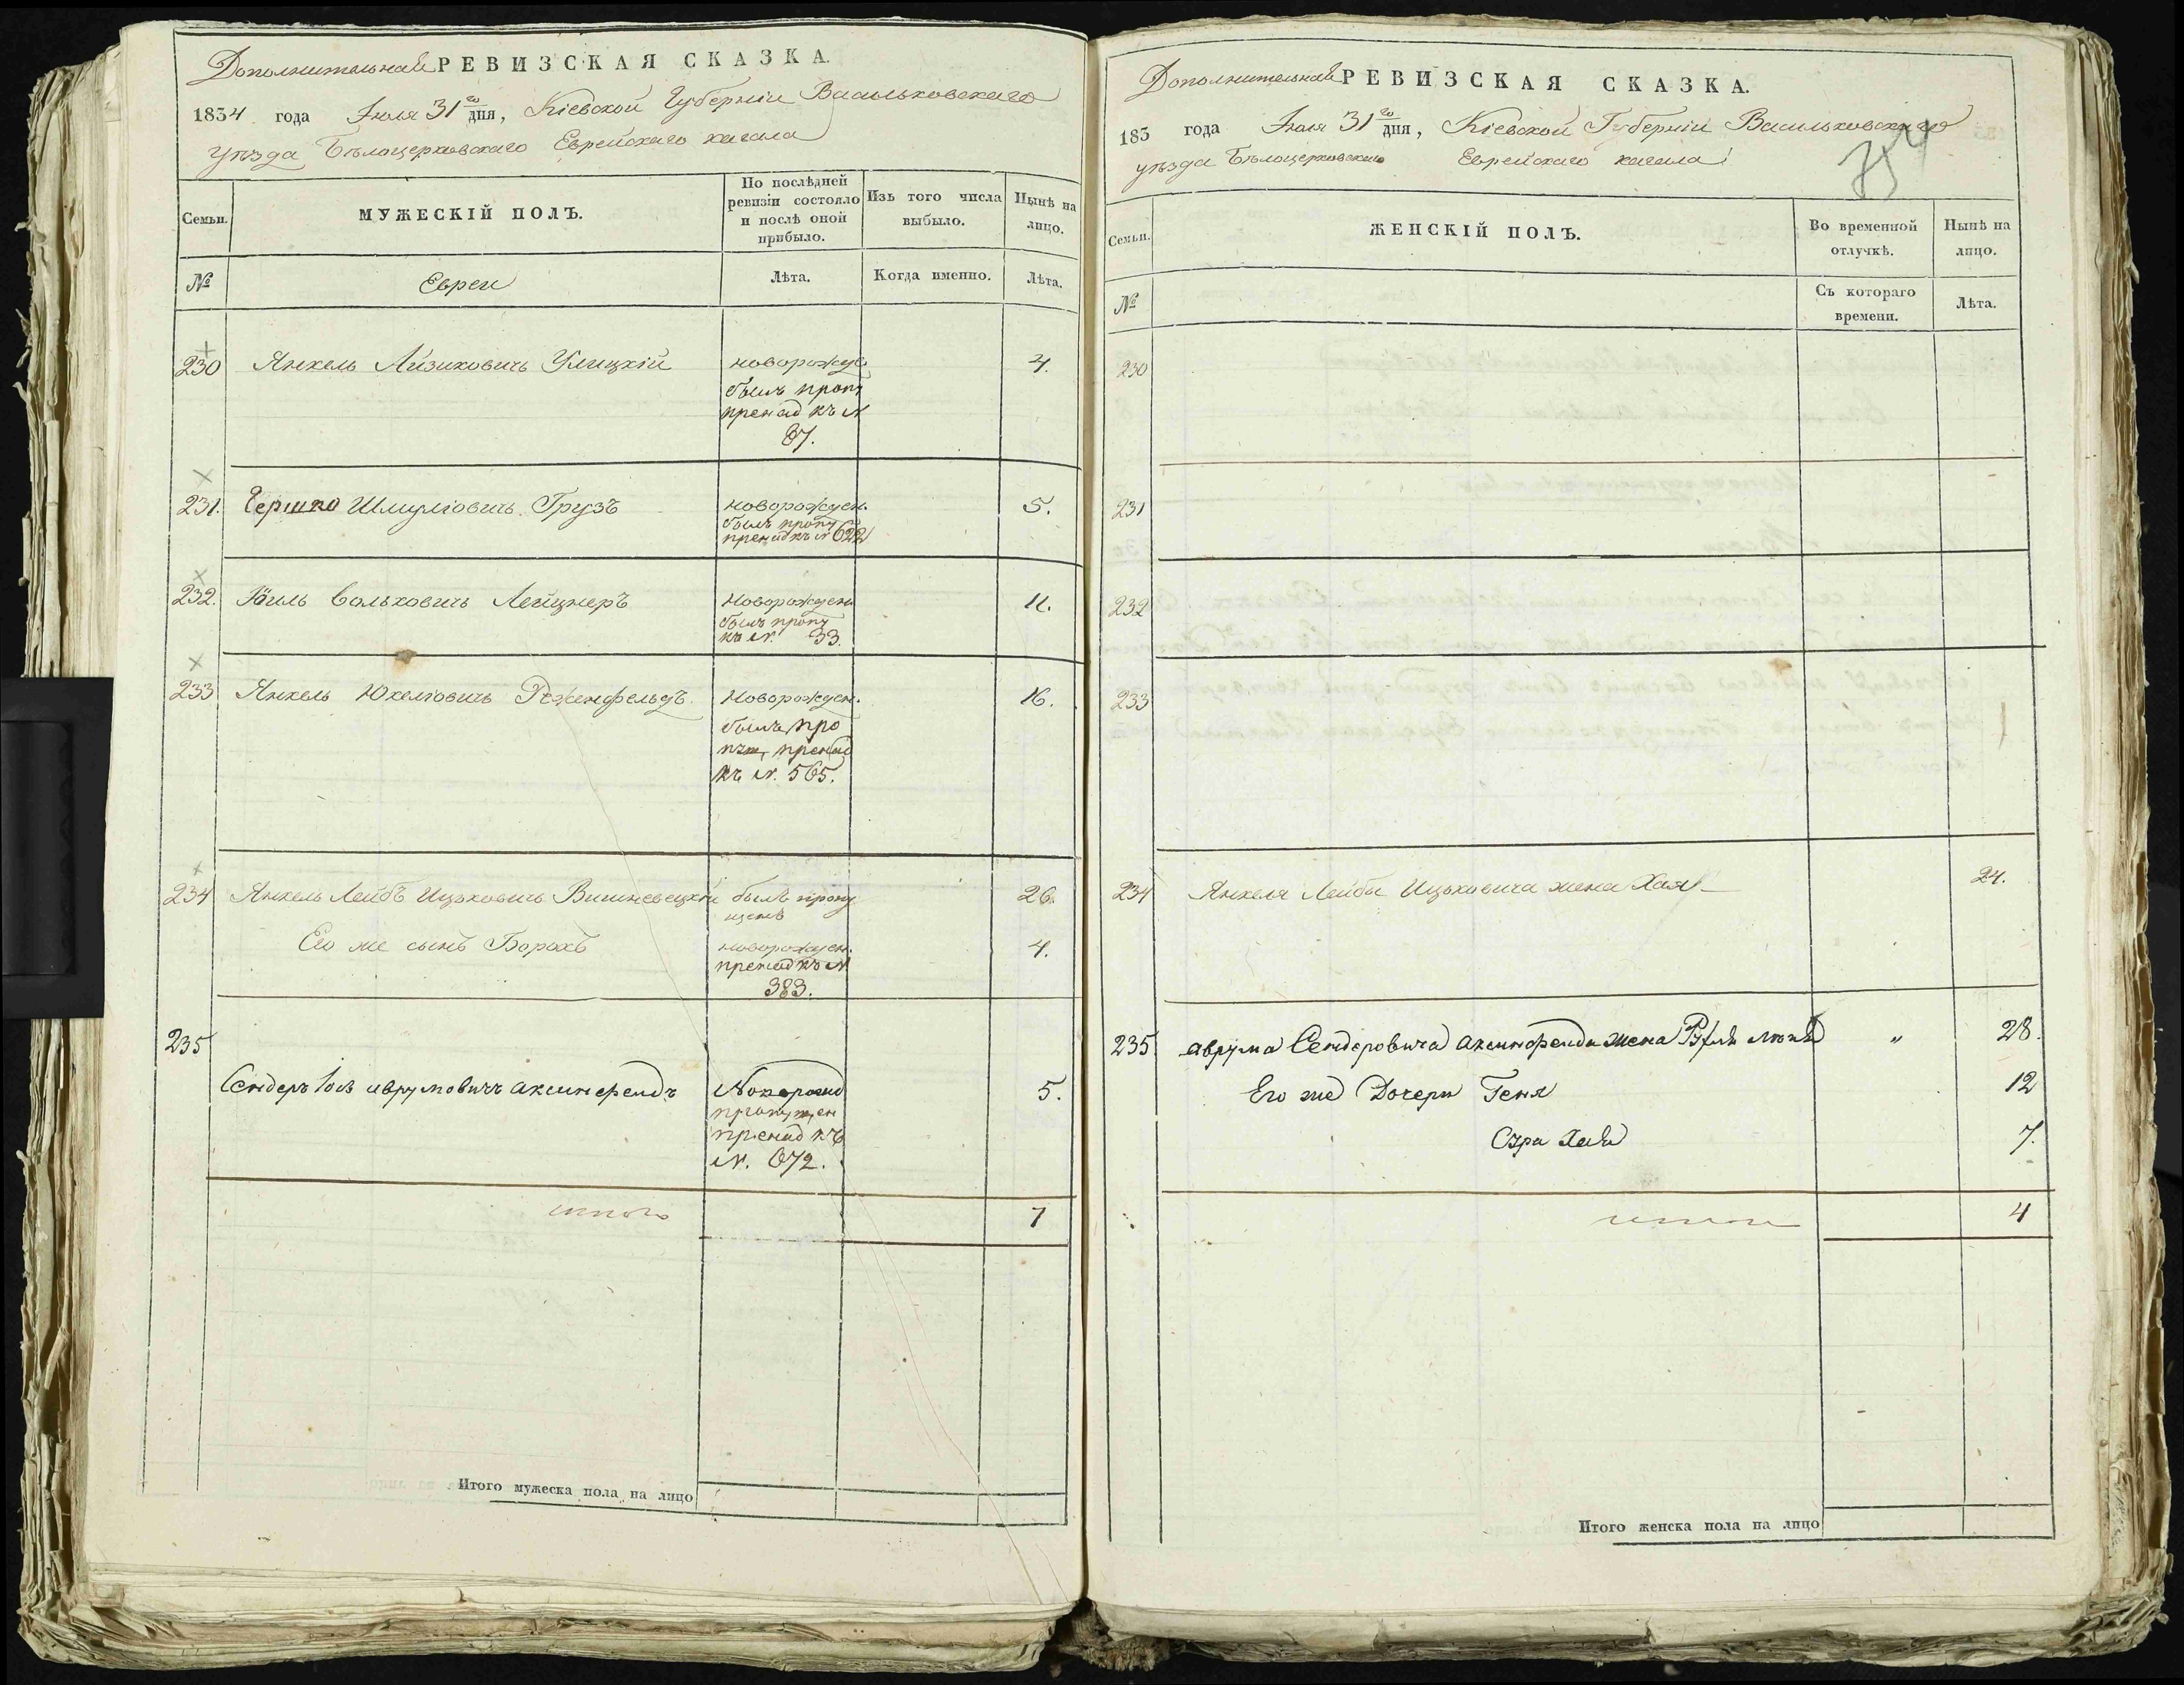 Дополнительная РЕВИЗСКАЯ СКАЗКА.
1834 года Июля 31го дня, Кіевской Губерніи Васильковскаго
уѣзда Бѣлоцерковскаго Еврейскаго кагала
Семьи.
МУЖЕСКІЙ ПОЛЪ.
По послѣдней ревизіи состояло и послѣ оной прибыло.
Изъ того числа выбыло.
Нынѣ на лицо.
№
Евреи
Лѣта.
Когда именно.
Лѣта.
230 Янкель Айзиковичъ Улицкій новорожде 4.
былъ проп
пренад къ №
87.
231. Гершко Шмулiовичъ Грузъ новорожден. 5.
былъ пропу
пренад къ № 622
232. Іойль Волковичъ Лейцнеръ Новорожден 11.
былъ пропу
къ №. 33.
233 Янкель Юкелiовичъ Розенфельдъ Новорожден. 16.
былъ про
пренад
къ №. 565.
234 Янкель Лейбъ Ицьковичъ Вишневецкій былъ пропу 26.
щенъ
Его же сынъ Борохъ новорожден. 4.
пренад къ №
383.
235
Сендеръ Іось аврумовичъ аксинфендъ 5.
пропущен
пренад къ
№. 672.
итого 7
Итого мужеска пола на лицо
Дополнительная РЕВИЗСКАЯ СКАЗКА.
183 года Июля 31го дня, Кіевской Губерніи Васильковскаго
уѣзда Бѣлоцерковскаго Еврейскаго кагала
Семьи.
ЖЕНСКІЙ ПОЛЪ.
Во временной отлучкѣ.
Нынѣ на лицо.
№
Съ котораго времени.
Лѣта.
230
231
232
233
234 Янкеля Лейбы Ицьковича жена Хая 24.
235 аврума Сендеровича аксинфенда жена " 28.
Его же Дочери Геня 12
Сура Хая 7.
итого 4
Итого женска пола на лицо